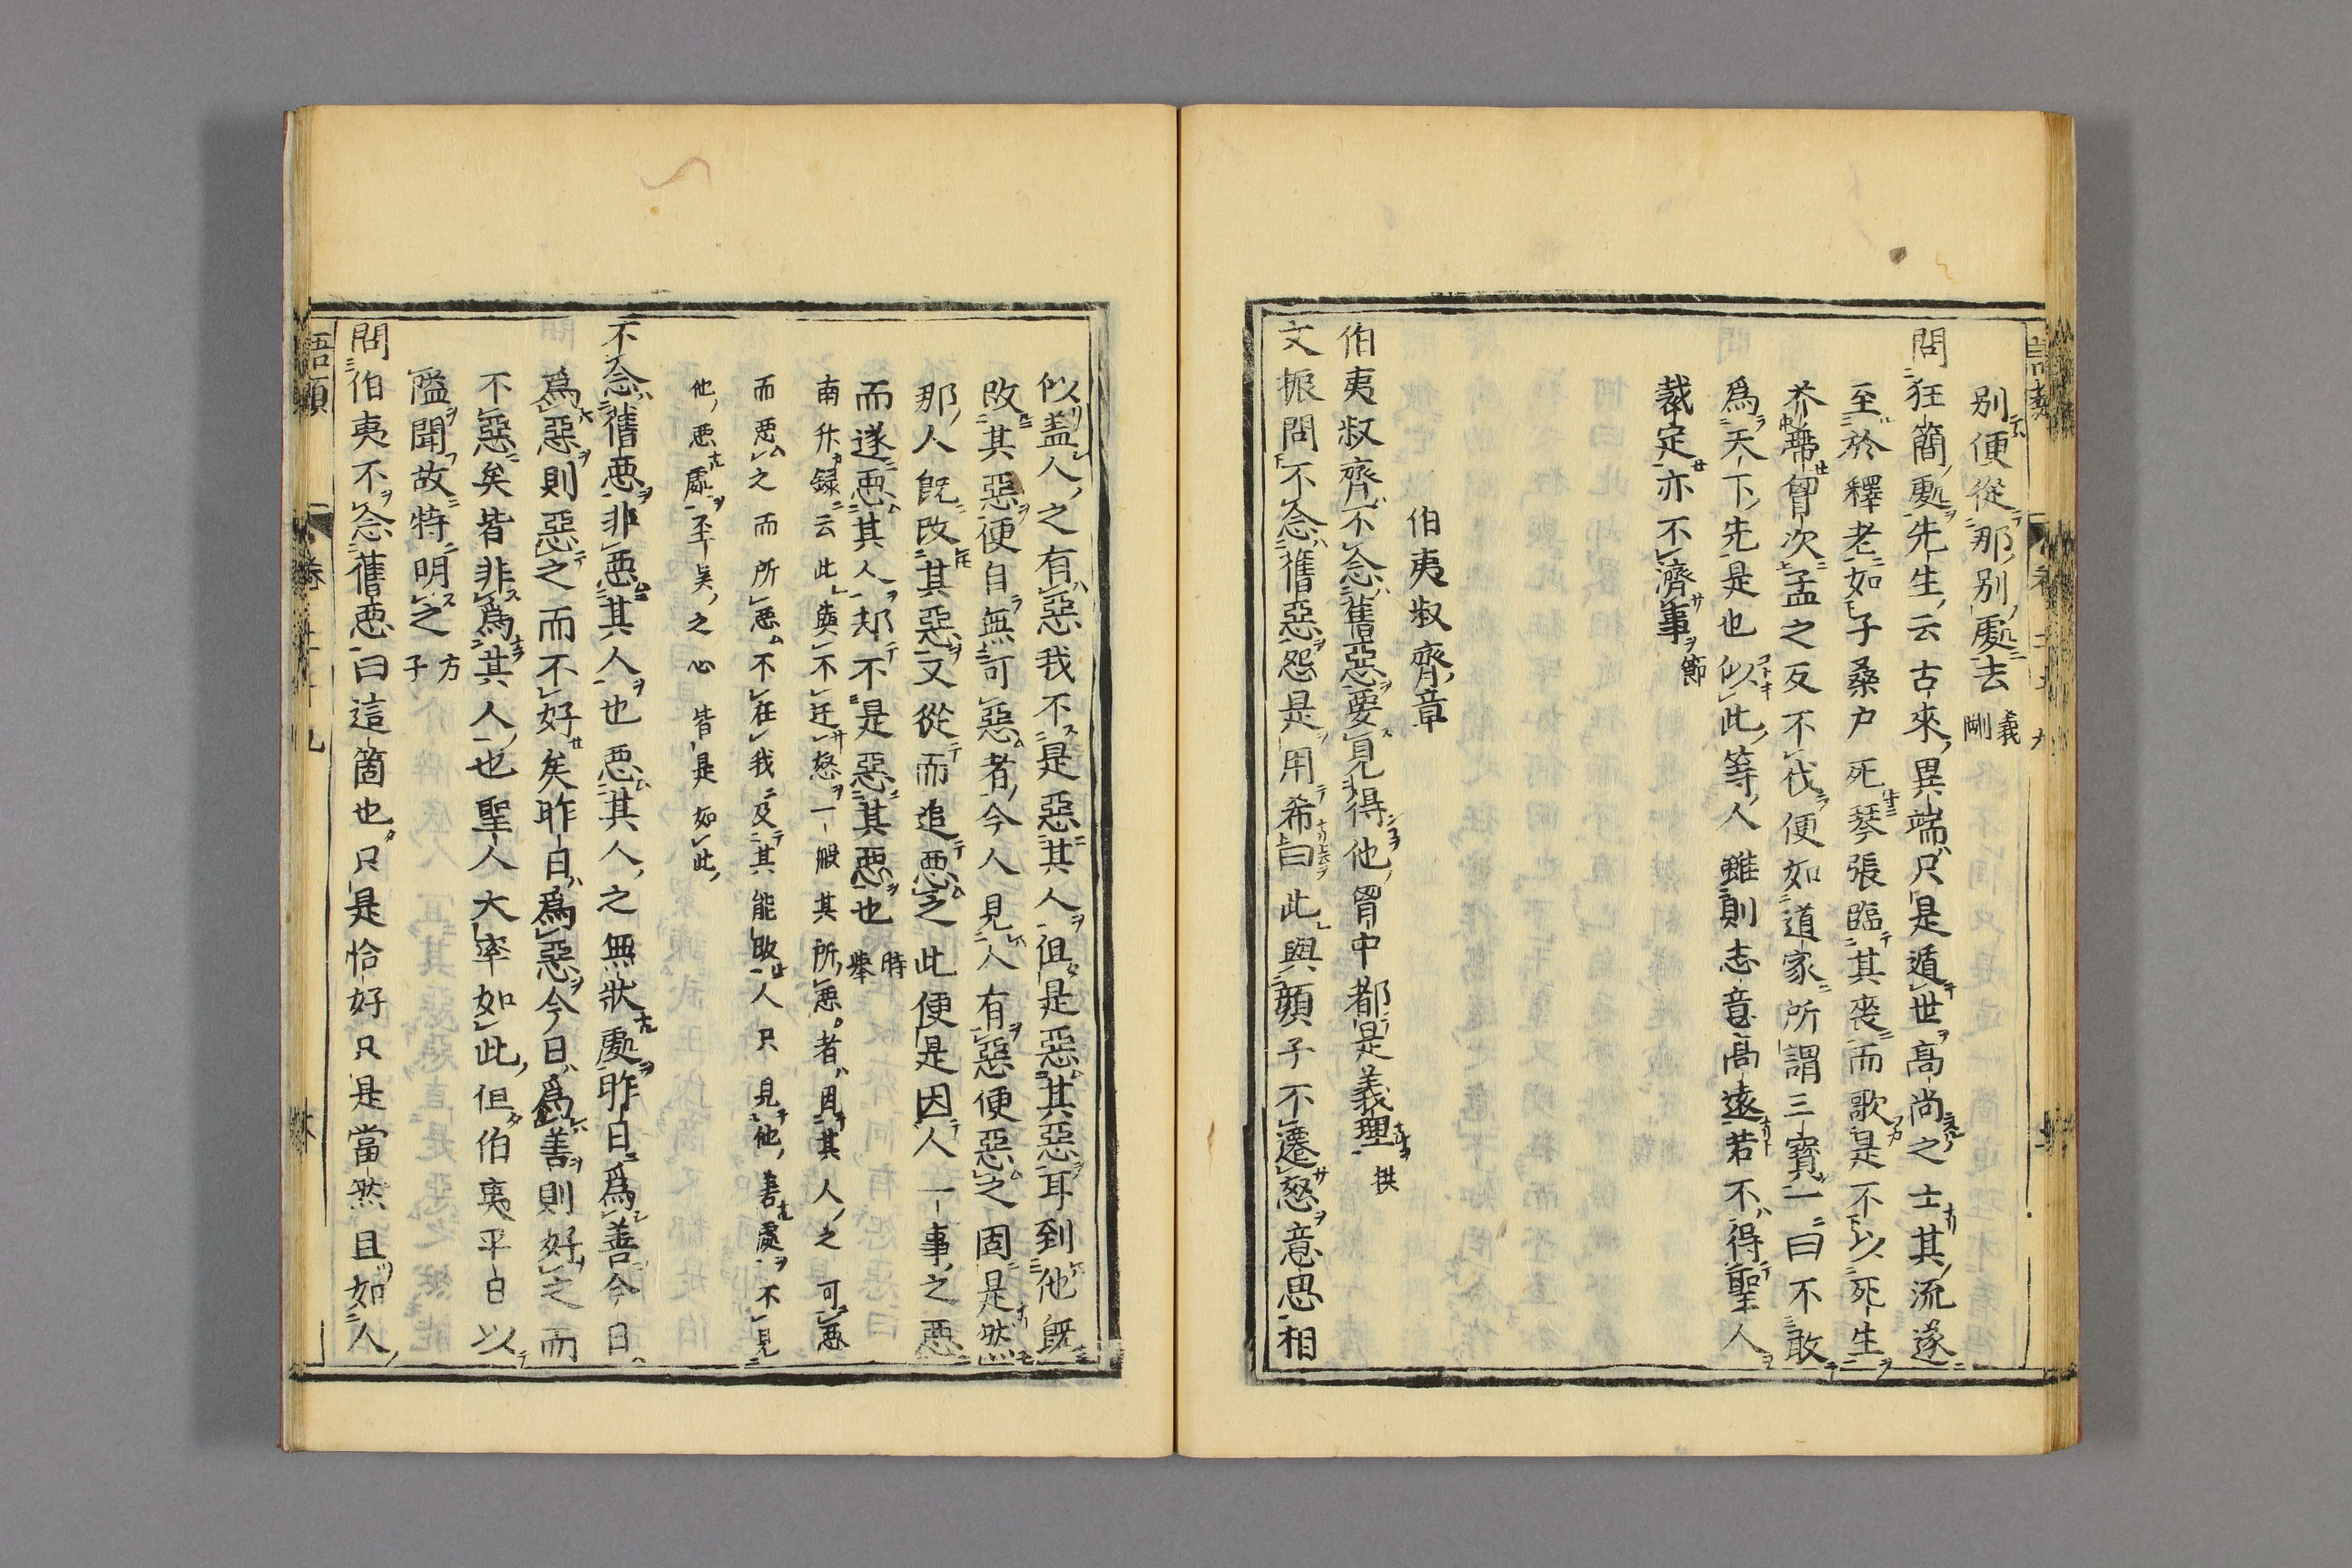 別便從那別處去 義剛
問狂簡處先生云古來異端只是遁世高尚之士其流遂
至於釋老如子桑户死琴張臨其喪而歌是不以死生
芥帶胷次孟之反不伐便如道家所謂三寶一曰不敢
爲天下先是也似此等人雖則志意高遠若不得聖人
裁定亦不濟事 節
伯夷叔齊章
伯夷叔齊不念舊惡要見得他胷中都是義理 拱
文振問不念舊惡怨是用希曰此與顔子不遷怒意思相
似盖人之有惡我不是惡其人但是惡其惡耳到他既
改其惡便自無可惡者今人見人有惡便惡之固是然
那人既改其惡又從而追惡之此便是因人一事之惡
而遂惡其人却不是惡其惡也 時舉
南升録云此與不迁怒一般其所惡者因其人之可惡
而惡之而所惡不在我及其能改人只見他善處不見
他惡處至吴之心皆是如此
不念舊惡非惡其人也惡其人之無狀處昨日爲善今日
爲惡則惡之而不好矣昨日爲惡今日爲善則好之而
不惡矣皆非爲其人也聖人大率如此但伯夷平日以
隘聞故特明之 方子
問伯夷不念舊惡曰這箇也只是恰好只是當然且如人
語類 卷二十九